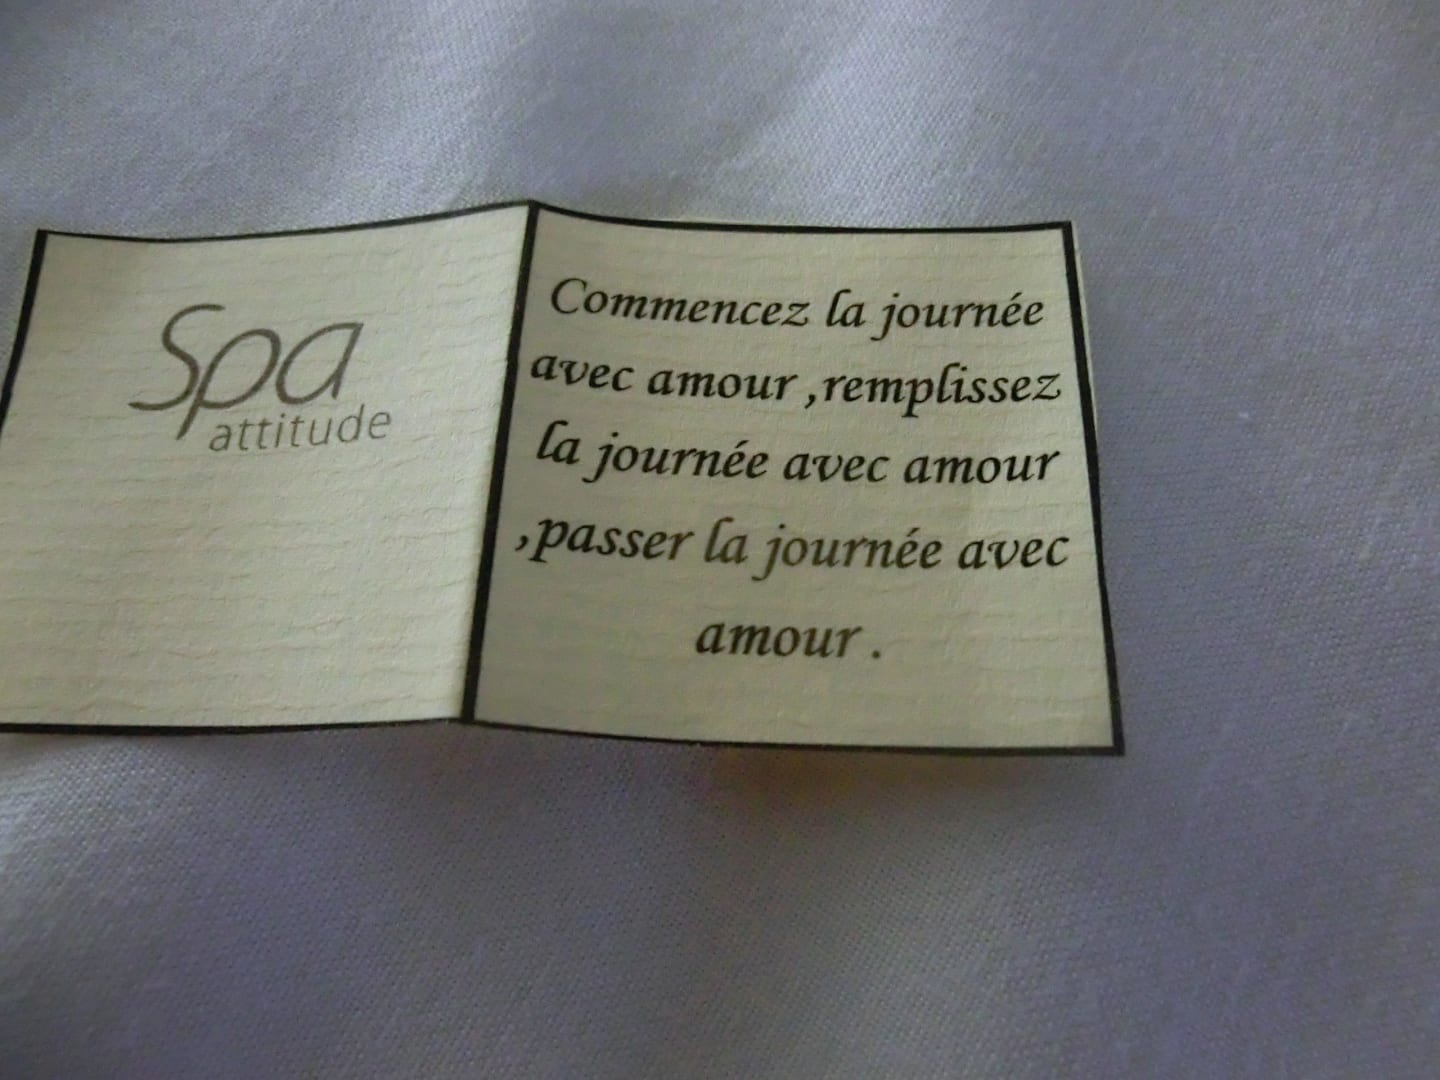 Spa
attitude
Commencez la journée
avec amour ,remplissez
la journée avec amour
,passer la journée avec
amour .